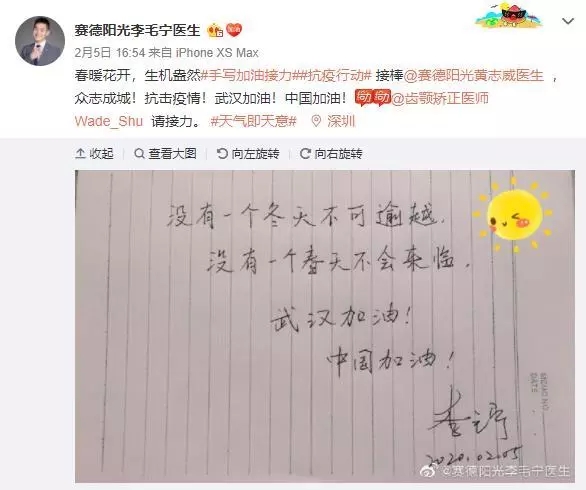 赛德阳光李毛宁医生
2月5日 16:54 来自 iPhone XS Max
春暖花开，生机盎然#手写加油接力##抗疫行动# 接棒@赛德阳光黄志威医生 ，
众志成城！抗击疫情！武汉加油！中国加油！@齿颚矫正医师
Wade_Shu 请接力。 #天气即天意# 深圳
收起 查看大图 向左旋转 向右旋转
没有一个冬天不可逾越.
没有一个春天不会来临.
武汉加油!
中国加油!
MO/AO NO.
DATE
2020.02.05
@赛德阳光李毛宁医生